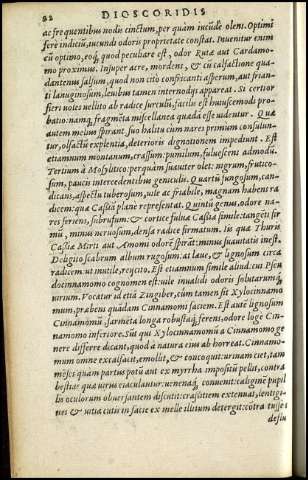 82 DIOSCORIDIS
ac frequentibus nodis cinctum, per quàm iucũde olens. Optimi
ferè indiciũ, iucundi odoris proprietate constat. Inuenitur enim
cũ optimo, eoq́; quod peculiare est, odor Rutæ aut Cardamo-
mo proximus. Insuper acre, mordens, & cũ calfactione qua-
dantenus salsum, quod non citò confricanti asperum, aut frian-
ti lanuginosum, leuibus tamen internodijs appareat. Si certior
fieri uoles uellito ab radice surculũ, facilis est huiuscemodi pro-
batio: namq́; fragmẽta miscellanea quædã esse uidentur. Quæ
autem melius spirant, suo halitu cum nares primum consulun-
tur, olfactũ explentia, deterioris dignotionem impediunt. Est
etiamnum montanum, crassum: pumilum, fuluescens admodũ.
Tertium à Mosylitico: perquàm suauiter olet: nigrum, frutico-
sum, paucis intercedentibus geniculis. Quartũ fungosum, can-
dicans, aspectu tuberosum, uile ac friabile, magnam habens ra
dicem: quæ Casiã planè repræsentat. Quintũ genus, odore na-
res feriens, subrufum: & cortice fuluæ Casiæ simile: tangẽti fir
mũ, minus neruosum, densa radice firmatum. Iis quæ Thuris
Casiæ Mirti aut Amomi odorẽ spirãt: minus suauitatis inest.
Deligito scabrum album rugosum: at laue, & lignosum circa
radicem ut inutile, reijcito. Est etiamnum simile aliud: cui Pseu
docinnamomo cognomen est: uile inualidi odoris solutarumq́;
uirium. Vocatur id etiã Zingiber, cũm tamen sit Xylocinnamo
num, præbens quãdam Cinnamomi faciem. Est autẽ lignosum
Cinnamomũ, sarmẽta longa robustaq́; ferens, odore lõgè Cin-
namomo inferiore. Sũt qui Xylocinnamomũ à Cinnamomo ge
nere differre dicant, quod à natura eius abhorreat. Cinnamo-
mum omne excalfacit, emollit, & concoquit: urinam ciet, tam
mẽses quàm partus potũ aut ex myrrha impositũ pellit, contra
bestias quæ uirus eiaculantur: uenenaq́;, conuenit: caliginẽ pupil
lis oculorum obuersantem discutit: crassitiem extenuat, lentigi-
nes & uitia cutis in facie ex melle illitum detergit: cõtra tusses
destil